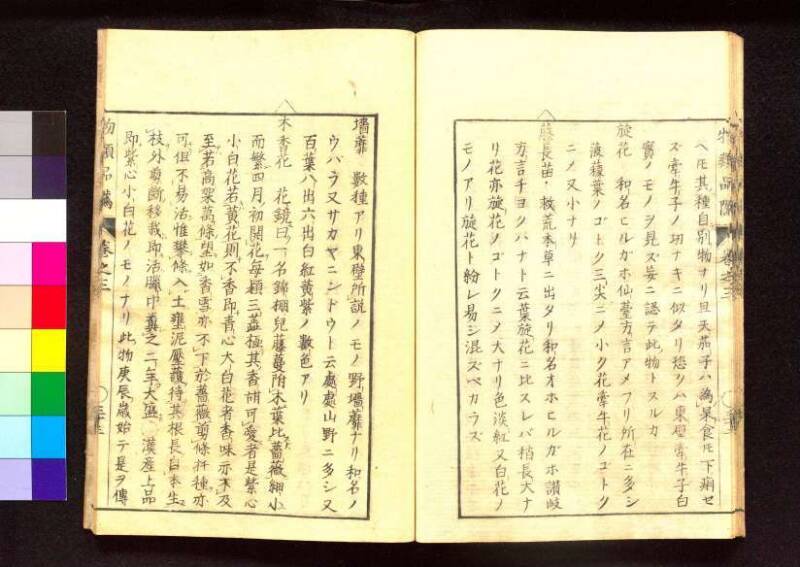 物類品隲 卷之三
ヘ圧其種自別物ナリ且天茄子ハ為果食圧下痢セ
ズ牽牛子ノ功ナキニ似タリ恐クハ東壁牽牛子白
實ノモノヲ見ズ妄ニ認テ此物トスルカ
旋花 和名ヒルガホ仙臺方言アメフリ所在ニ多シ
葉ノゴトク三尖ニメ小ク花牽牛花ノゴトク
ニメ又小ナリ
藤長苗 救荒本草ニ出タリ和名オホヒルガホ讃岐
方言チヨクバナト云葉旋花ニ比スレバ稍長大ナ
リ花亦旋花ノゴトクニメ大ナリ色淡紅又白花ノ
モノアリ旋花ト紛レ易シ混ズベカラズ
墻蘼 數種アリ東璧所説ノモノ野墻蘼ナリ和名ノ
ウバラ又サカヤニンドウト云處處山野ニ多シ又
百葉八出六出白紅黄紫ノ數色アリ
木香花 花鏡曰一名錦棚兒藤蔓附木葉比薔薇細小
而繁四月初開花毎穎三蕋極其香甜可愛者是紫心
小白花若黄花則不香即青心大白花者香味亦不及
至若高架萬條望如香雪亦不下於薔薇剪條扦種亦
可但不易活惟攀條入土壅泥壓護待其根長自本生
枝外剪斷移栽即活臘中糞之二年大盛 漢産上品
即紫心小白花ノモノナリ此物庚辰歳始テ是ヲ傳
物類品隲 卷之三